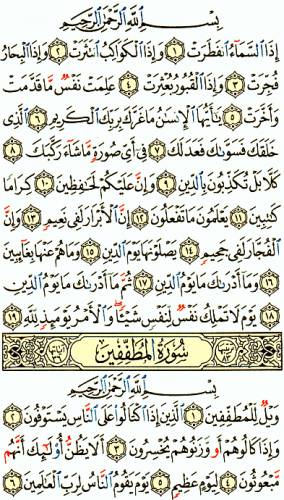 بِسْمِ ٱللَّهِ ٱلرَّحْمَٰنِ ٱلرَّحِيمِ
إِذَا ٱلسَّمَآءُ ٱنفَطَرَتْ ١ وَإِذَا ٱلْكَوَاكِبُ ٱنتَثَرَتْ ٢ وَإِذَا ٱلْبِحَارُ
فُجِّرَتْ ٣ وَإِذَا ٱلْقُبُورُ بُعْثِرَتْ ٤ عَلِمَتْ نَفْسٌ مَّا قَدَّمَتْ
وَأَخَّرَتْ ٥ يَٰٓأَيُّهَا ٱلْإِنسَٰنُ مَا غَرَّكَ بِرَبِّكَ ٱلْكَرِيمِ ٦ ٱلَّذِى
خَلَقَكَ فَسَوَّىٰكَ فَعَدَلَكَ ٧ فِىٓ أَىِّ صُورَةٍ مَّا شَآءَ رَكَّبَكَ ٨
كَلَّا بَلْ تُكَذِّبُونَ بِٱلدِّينِ ٩ وَإِنَّ عَلَيْكُمْ لَحَٰفِظِينَ ١٠ كِرَامًا
كَٰتِبِينَ ١١ يَعْلَمُونَ مَا تَفْعَلُونَ ١٢ إِنَّ ٱلْأَبْرَارَ لَفِى نَعِيمٍ ١٣ وَإِنَّ
ٱلْفُجَّارَ لَفِى جَحِيمٍ ١٤ يَصْلَوْنَهَا يَوْمَ ٱلدِّينِ ١٥ وَمَا هُمْ عَنْهَا بِغَآئِبِينَ
١٦ وَمَآ أَدْرَىٰكَ مَا يَوْمُ ٱلدِّينِ ١٧ ثُمَّ مَآ أَدْرَىٰكَ مَا يَوْمُ ٱلدِّينِ
١٨ يَوْمَ لَا تَمْلِكُ نَفْسٌ لِّنَفْسٍ شَيْـًٔا وَٱلْأَمْرُ يَوْمَئِذٍ لِّلَّهِ ١٩
سُورَةُ المُطَفِّفِينَ
بِسْمِ ٱللَّهِ ٱلرَّحْمَٰنِ ٱلرَّحِيمِ
وَيْلٌ لِّلْمُطَفِّفِينَ ١ ٱلَّذِينَ إِذَا ٱكْتَالُوا۟ عَلَى ٱلنَّاسِ يَسْتَوْفُونَ ٢
وَإِذَا كَالُوهُمْ أَو وَّزَنُوهُمْ يُخْسِرُونَ ٣ أَلَا يَظُنُّ أُو۟لَٰٓئِكَ أَنَّهُم
مَّبْعُوثُونَ ٤ لِيَوْمٍ عَظِيمٍ ٥ يَوْمَ يَقُومُ ٱلنَّاسُ لِرَبِّ ٱلْعَٰلَمِينَ ٦